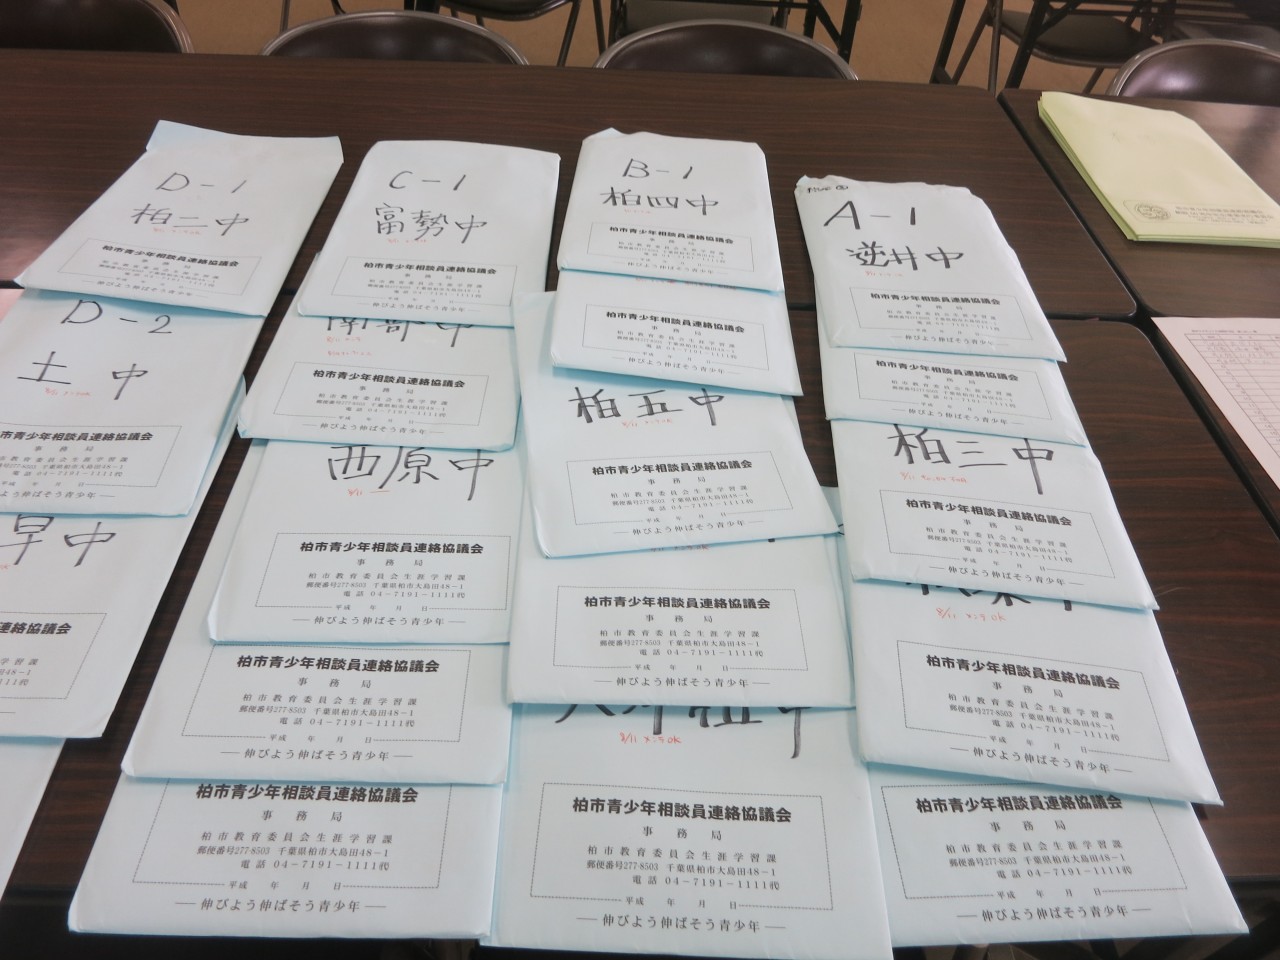 D-1
柏二中
柏市青少年相談員連絡協議会
事務局
D-2
土中
市青少年相談員連絡協議会
事務局
伸びよう伸ばそう青少年
早中
C-1
富勢中
柏市青少年相談員連絡協議会
事務局
伸びよう伸ばそう青少年
柏市青少年相談員連絡協議会
事務局
柏市教育委員会生涯学習課
郵便番号277-8503 千葉県柏市大島田48-1
電話 04-7191-1111代
西原中
8/11
柏市青少年相談員連絡協議会
事務局
柏市教育委員会生涯学習課
郵便番号277-8503 千葉県柏市大島田48-1
電話 04-7191-1111代
平成 年 月 日
伸びよう伸ばそう青少年
柏市青少年相談員連絡協議会
事務局
柏市教育委員会生涯学習課
郵便番号277-8503 千葉県柏市大島田48-1
電話 04-7191-1111代
平成 年 月 日
伸びよう伸ばそう青少年
柏市青少年相談員連絡協議会
事務局
柏市教育委員会生涯学習課
郵便番号277-8503 千葉県柏市大島田48-1
電話 04-7191-1111代
平成 年 月 日
伸びよう伸ばそう青少年
B-1
柏四中
柏市青少年相談員連絡協議会
事務局
伸びよう伸ばそう青少年
柏市青少年相談員連絡協議会
事務局
柏市教育委員会生涯学習課
伸びよう伸ばそう青少年
柏五中
柏市青少年相談員連絡協議会
事務局
柏市教育委員会生涯学習課
郵便番号277-8503 千葉県柏市大島田48-1
電話 04-7191-1111代
平成 年 月 日
伸びよう伸ばそう青少年
柏市青少年相談員連絡協議会
事務局
柏市教育委員会生涯学習課
郵便番号277-8503 千葉県柏市大島田48-1
電話 04-7191-1111代
平成 年 月 日
伸びよう伸ばそう青少年
8/11 メンテOK
柏市青少年相談員連絡協議会
事務局
柏市教育委員会生涯学習課
郵便番号277-8503 千葉県柏市大島田48-1
電話 04-7191-1111代
平成 年 月 日
伸びよう伸ばそう青少年
A-1
逆井中
柏市青少年相談員連絡協議会
事務局
伸びよう伸ばそう青少年
柏市青少年相談員連絡協議会
事務局
伸びよう伸ばそう青少年
柏三中
柏市青少年相談員連絡協議会
事務局
柏市教育委員会生涯学習課
郵便番号277-8503 千葉県柏市大島田48-1
電話 04-7191-1111代
平成 年 月 日
伸びよう伸ばそう青少年
8/11 メンテOK
柏市青少年相談員連絡協議会
事務局
柏市教育委員会生涯学習課
郵便番号277-8503 千葉県柏市大島田48-1
電話 04-7191-1111代
平成 年 月 日
伸びよう伸ばそう青少年
柏市青少年相談員連絡協議会
事務局
柏市教育委員会生涯学習課
郵便番号277-8503 千葉県柏市大島田48-1
電話 04-7191-1111代
平成 年 月 日
伸びよう伸ばそう青少年